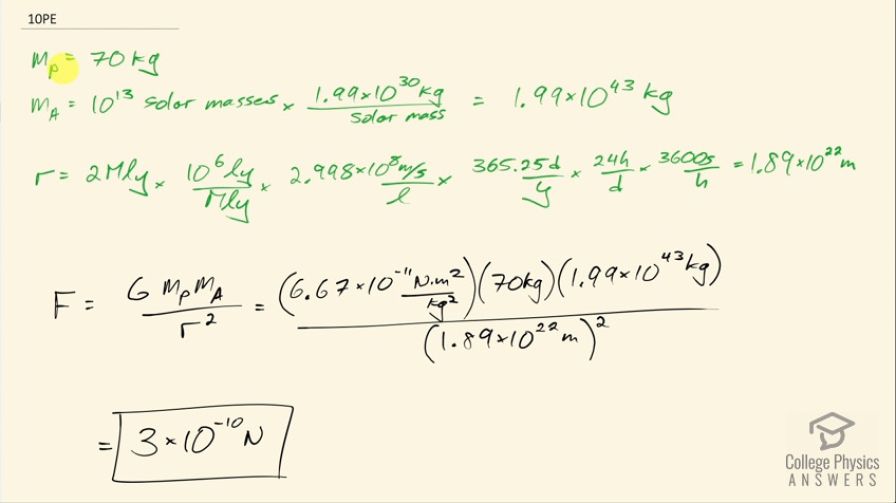 10PE
m_p = 70 kg
m_A = 10^13 solar masses × 1.99×10^30 kg / solar mass = 1.99×10^43 kg
r = 2 Mly × 10^6 ly / Mly × 2.998×10^8 m/s / l × 365.25d / y × 24h / d × 3600s / h = 1.89×10^22 m
F = G m_p m_A / r^2 = (6.67×10^-11 N·m^2 / kg^2)(70kg)(1.99×10^43 kg) / (1.89×10^22 m)^2
= 3×10^-10 N
College Physics
ANSWERS